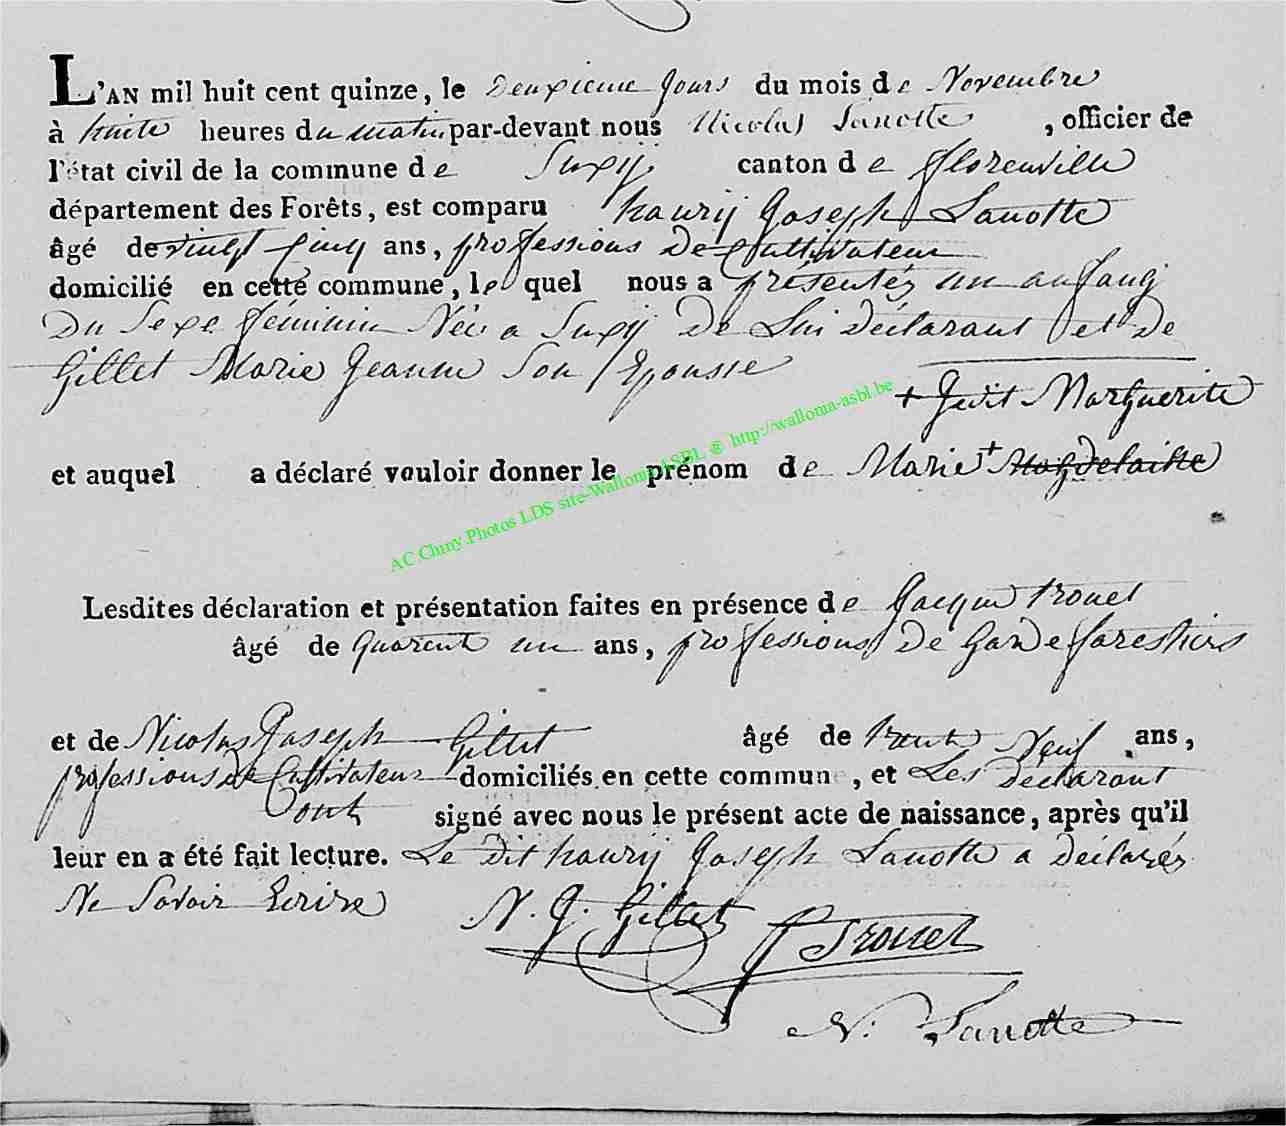 L'AN mil huit cent quinze, le Deuxieme Jours du mois de Novembre
à huite heures du matin par-devant nous Nicolas Lanotte, officier de
l'état civil de la commune de Suxÿ canton de florenville
département des Forêts, est comparu haurÿ Joseph Lanotte
âgé de vingt Cinq ans, professions De Cultivateur
domicilié en cette commune, le quel nous a présentéz un anfang
Du Sexe féminin Née a Suxÿ De Lui Déclarant et de
Gillet Marie Jeanne Son Epousse
+ Marguerite
et auquel a déclaré vouloir donner le prénom de Marie + Magdelaine
AC.Chiny.Photos LDS site-Wallonia ASBL @ http://wallonia-asbl.be
Lesdites déclaration et présentation faites en présence de Jacque trouet
âgé de quarent un ans, professions De Garde forestiers
et de Nicolas Joseph Gillet âgé de trente Neuf ans,
professions de Cultivateur domiciliés en cette commune, et Les Déclarant
Ont signé avec nous le présent acte de naissance, après qu'il
leur en a été fait lecture. Le Dit haurÿ Joseph Lanotte a Déclaréz
Ne Savoir Ecrire
N. J. Gillet
J Trouet
N. Lanotte